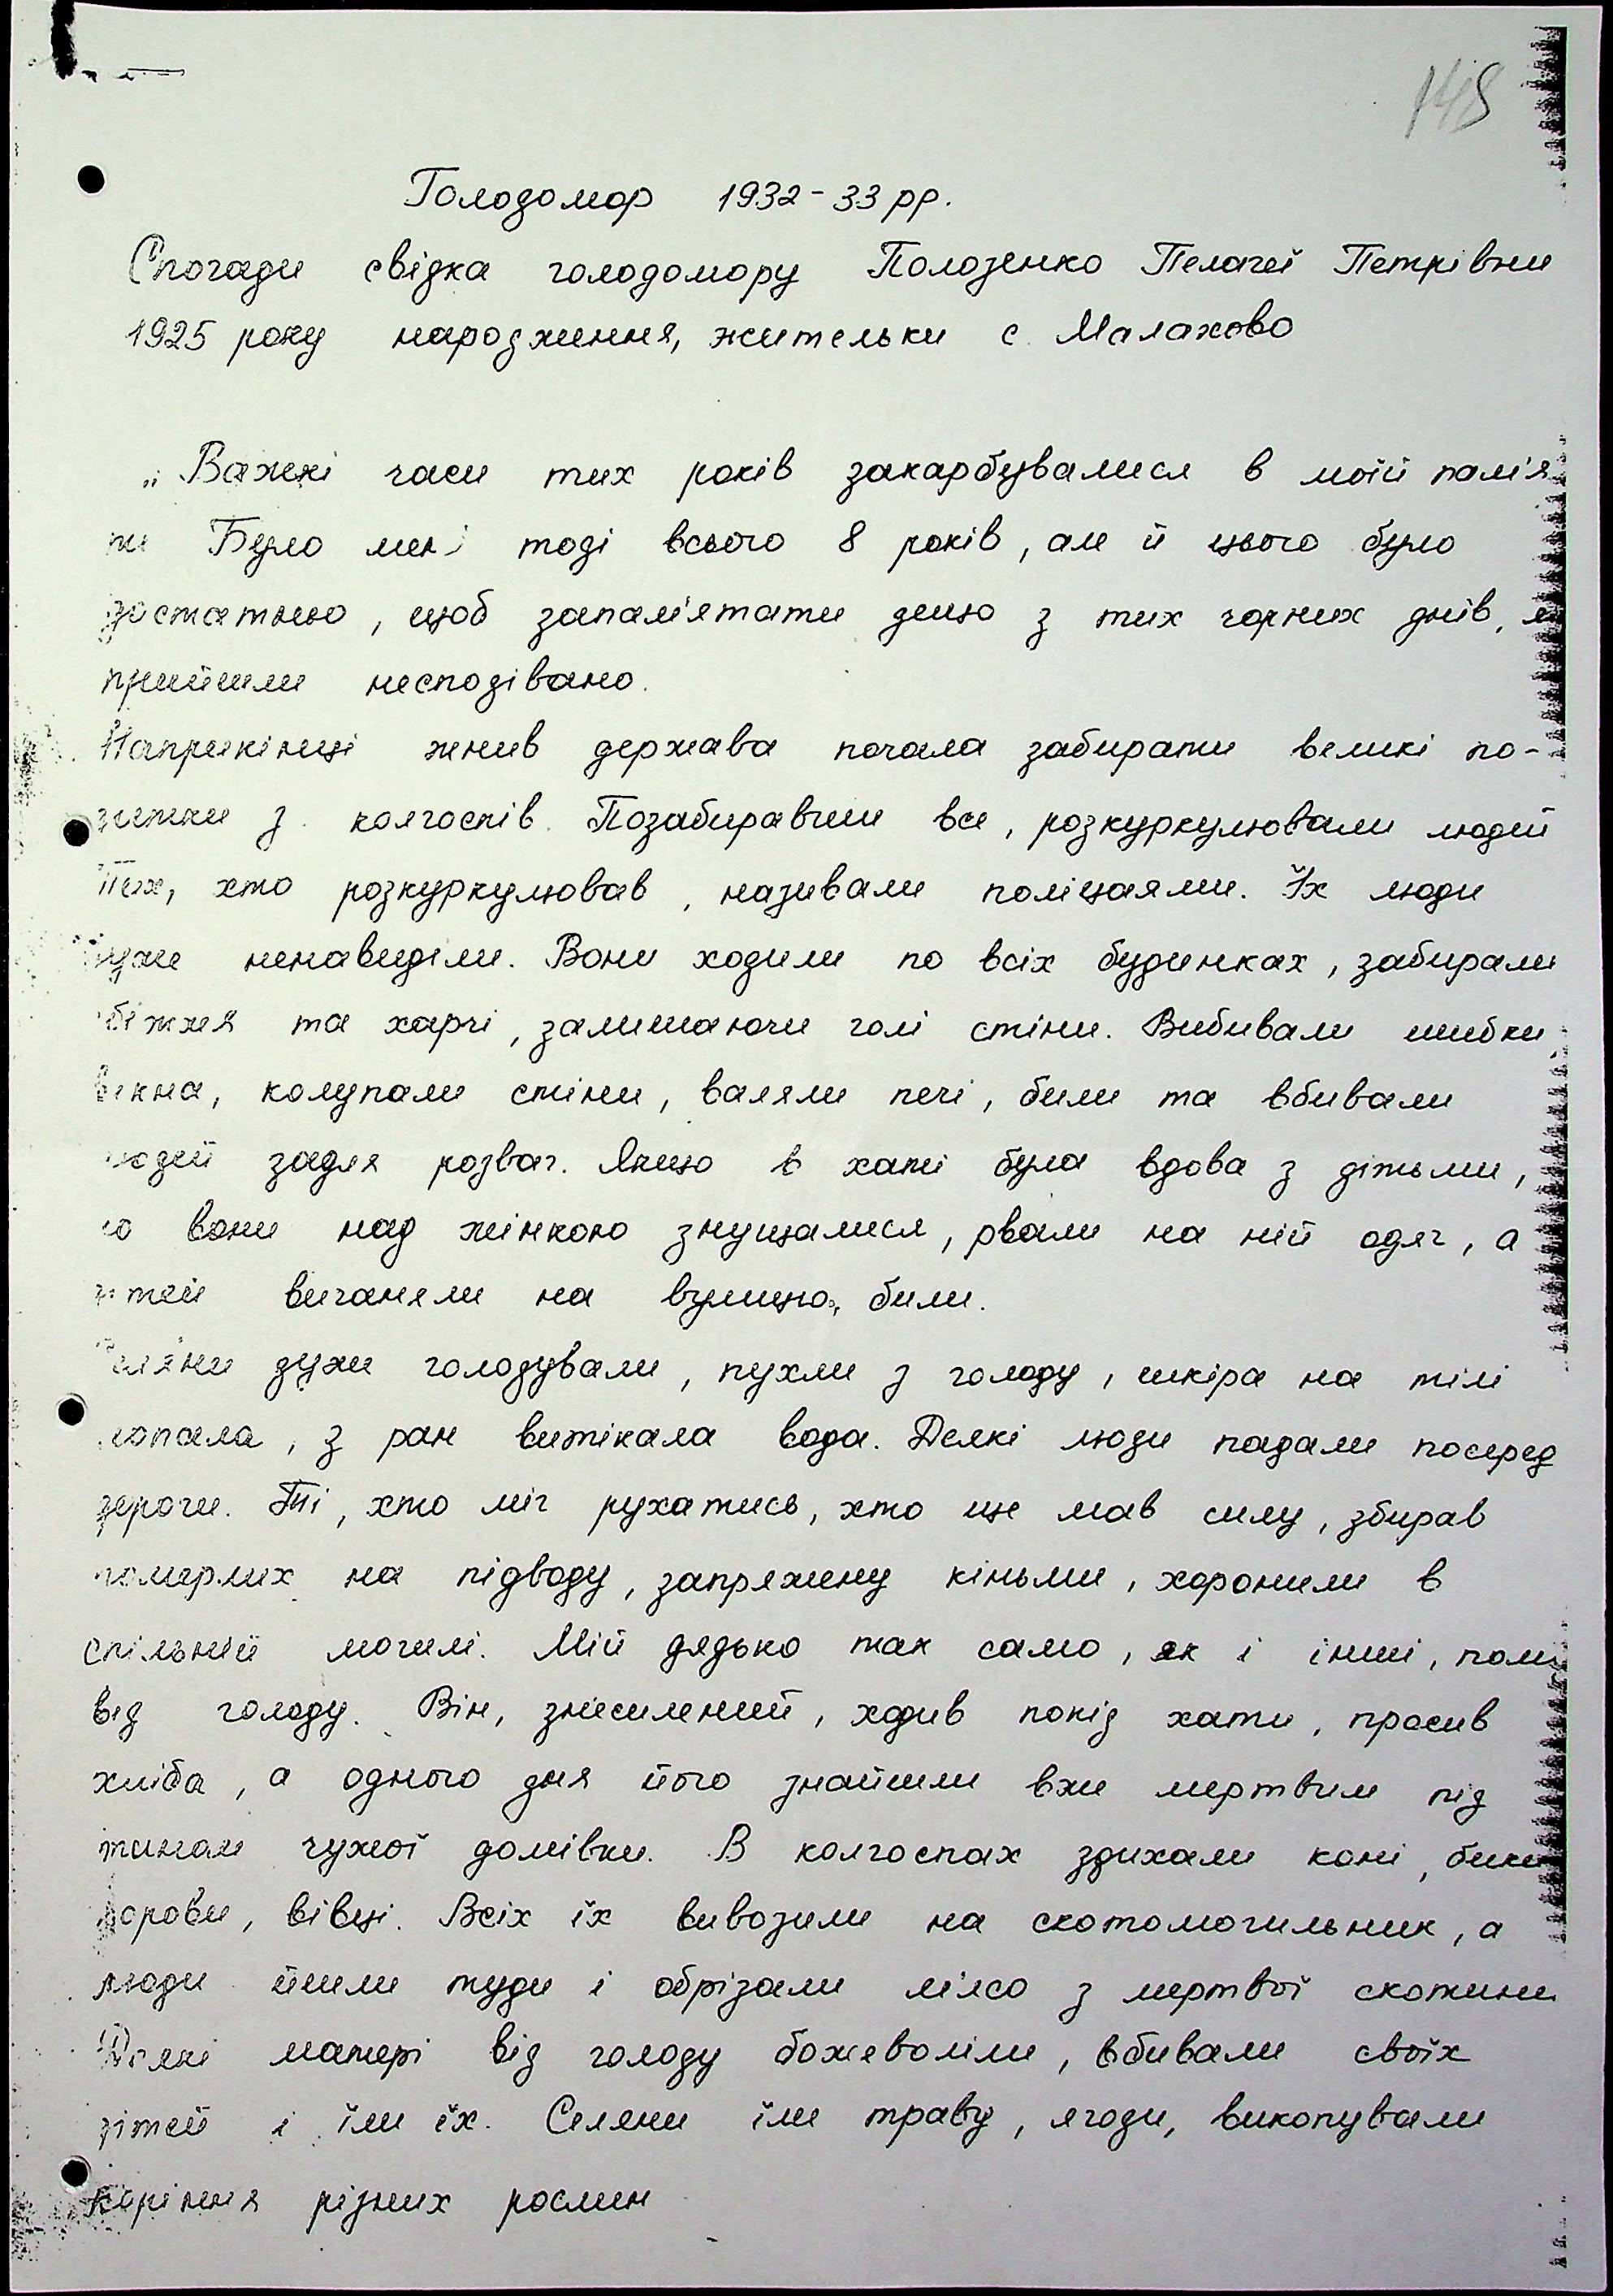 148
Голодомор 1932-33 рр.
Спогади свідка голодомору Полозенко Пелагеї Петрівни
1925 року народження, жительки с. Малахово
„Важкі часи тих років закарбувалися в моїй пам'я
ти Було мені тоді всього 8 років, але й цього було
достатньо, щоб запам'ятати дещо з тих чорних днів,
прийшли несподівано.
Наприкінці жнив держава почала забирати великі по-
зички з колгоспів. Позабиравши все, розкуркулювали людей
Тих, хто розкуркулював, називали поліцаями. Їх люди
дуже ненавиділи. Вони ходили по всіх будинках, забирали
збіжжя та харчі, залишаючи голі стіни. Вибивали шибки,
вікна, колупали стіни, валяли печі, били та вбивали
людей задля розваг. Якщо в хаті була вдова з дітьми,
то вони над жінкою знущалися, рвали на ній одяг, а
дітей виганяли на вулицю, били.
Селяни дуже голодували, пухли з голоду, шкіра на тілі
лопала, з ран витікала вода. Деякі люди падали посеред
дороги. Ті, хто міг рухатись, хто ще мав силу, збирав
померлих на підводу, запряжену кіньми, хоронили в
спільній могилі. Мій дядько так само, як і інші, пом
від голоду. Він, знесилений, ходив попід хати, просив
хліба, а одного дня його знайшли вже мертвим під
тином чужої домівки. В колгоспах здихали коні, бики
корови, вівці. Всіх їх вивозили на скотомогильник, а
люди йшли туди і обрізали м'ясо з мертвої скотини
Деякі матері від голоду божеволіли, вбивали своїх
дітей і їли їх. Селяни їли траву, ягоди, викопували
коріння різних рослин